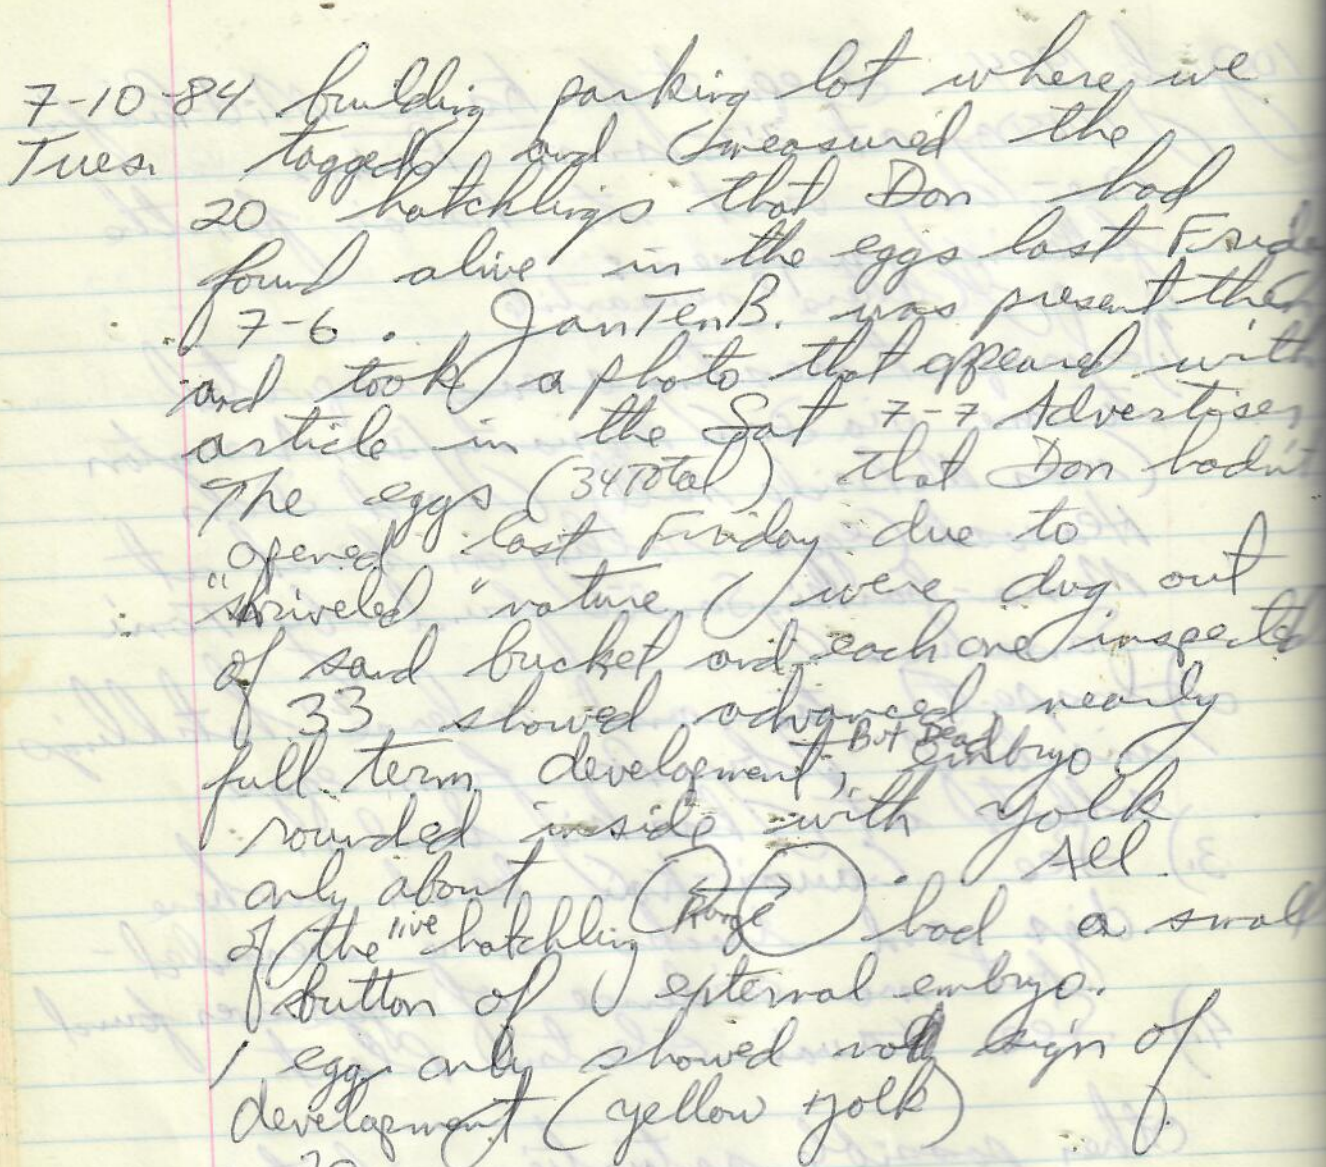 7-10-84 building parking lot where we
Tues. tagged and measured the
20 hatchlings that Don had
found alive in the eggs last Frida
7-6. Jan TenB. was present then
and took a photo that appeared with
article in the Sat 7-7 Advertiser
The eggs (34 Total) that Don hadn't
opened last Friday due to
"shriveled" nature were dug out
of sand bucket and each one inspected
33 showed advanced, nearly
full term development, But Dead embryo
rounded inside with yolk
only about Range . All
of the live hatchling had a small
button of external embryo.
1 egg only showed no sign of
development (yellow yolk)